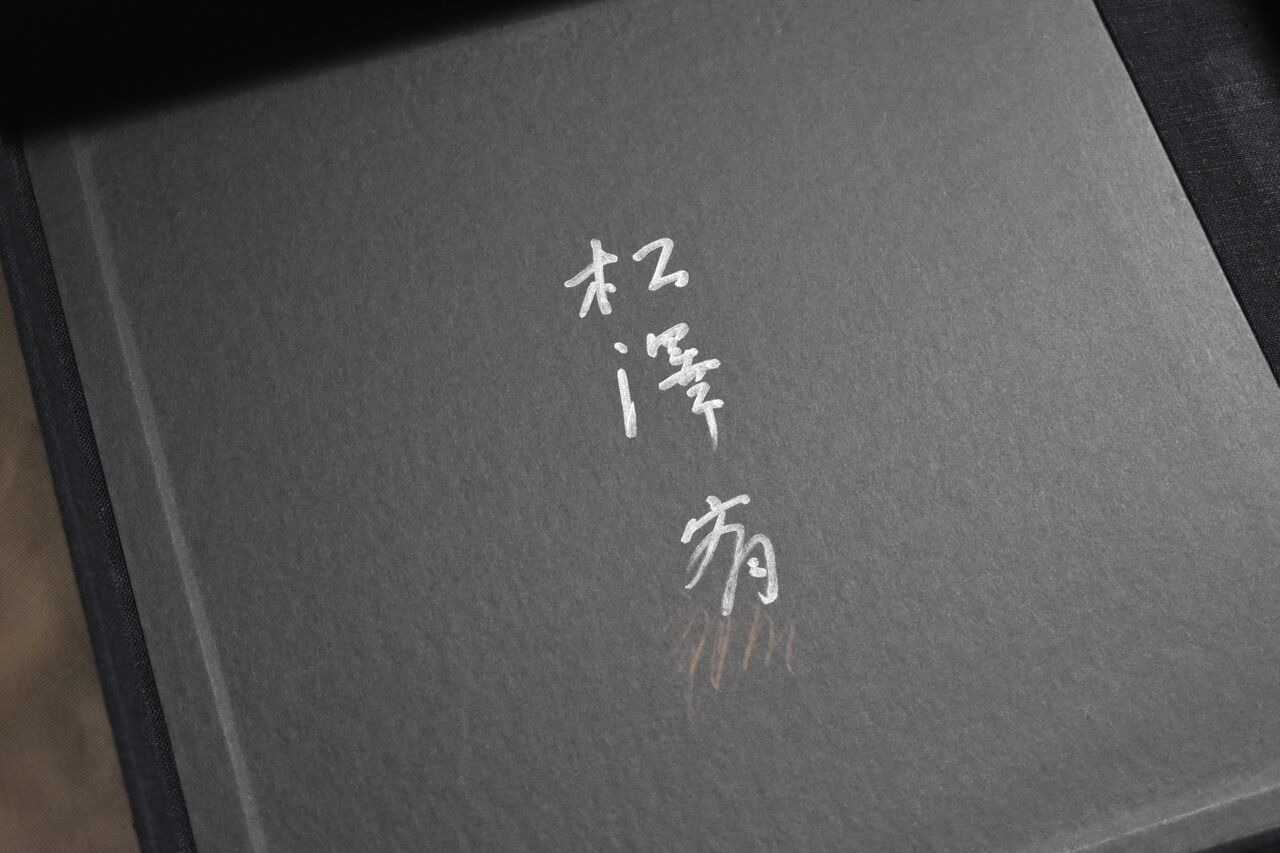 松澤宥